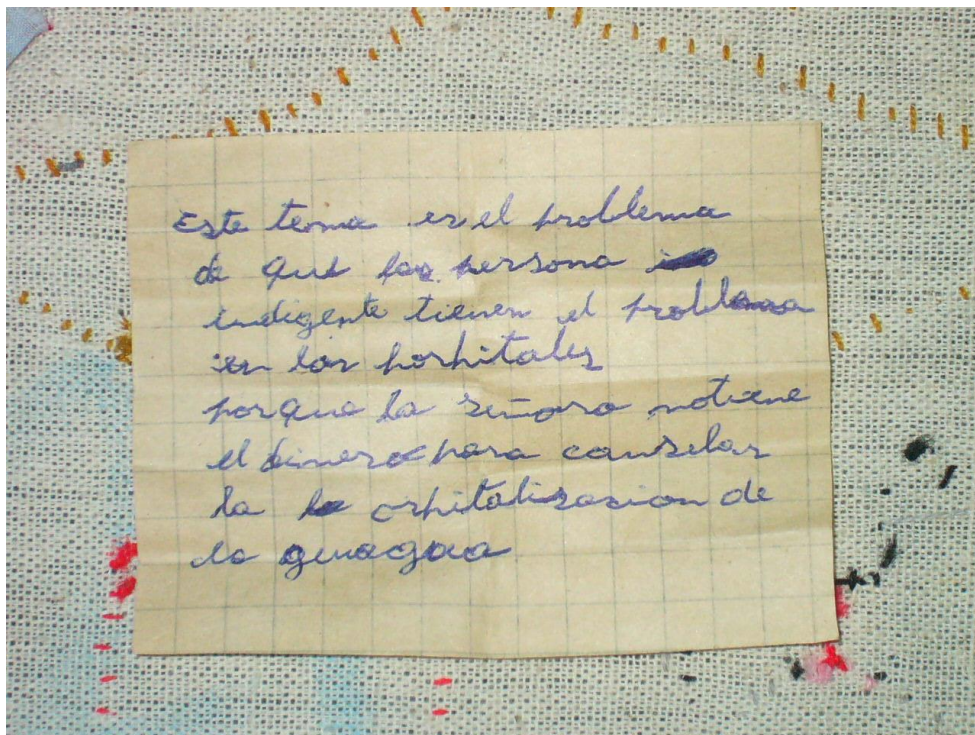 Este tema es el problema
de que las persona
indigente tienen el problema
en los hospitales
porque la señora notiene
el dinero para canselar
la ospitalisasion de
la guagua